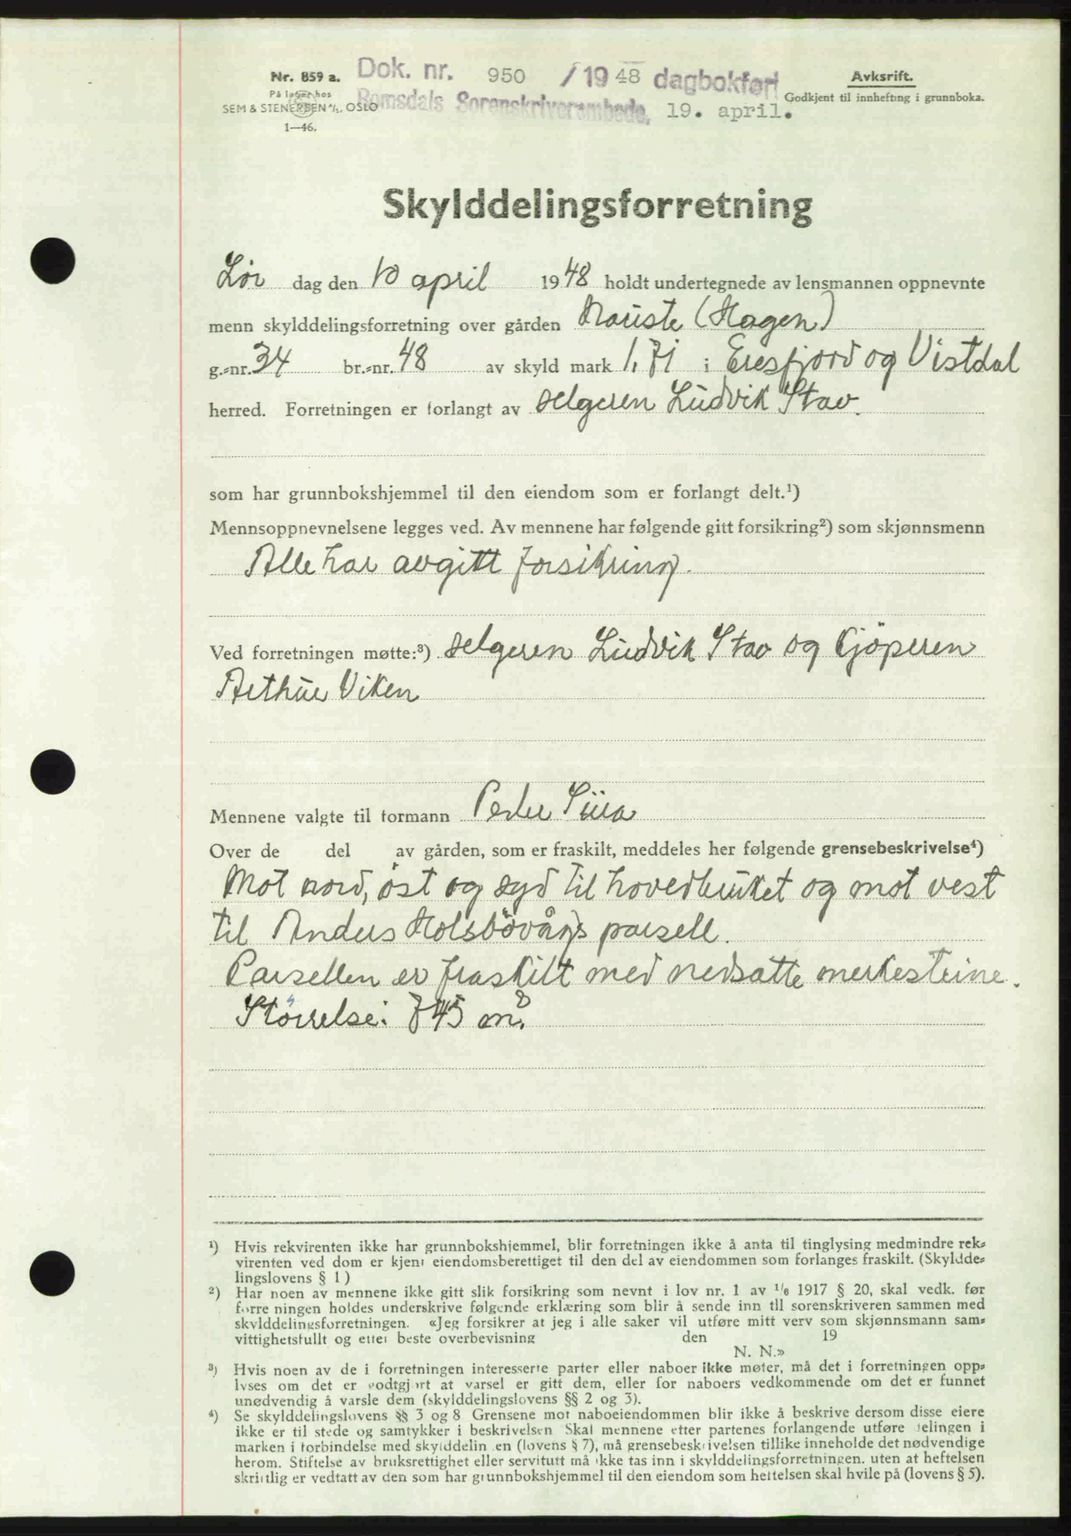 Nr. 859 a.
På lager hos
SEM & STENERSEN A/S. OSLO
1—46.
Dok. nr. 950 /19 48 dagbokført
Romsdals Sorenskriverembede, 19. april.
Avksrift.
Godkjent til innhefting i grunnboka.
Skylddelingsforretning
Lør dag den 10 april 1948 holdt undertegnede av lensmannen oppnevnte
menn skylddelingsforretning over gården Nauste (Hagen)
g.-nr. 34 br.-nr. 48 av skyld mark 1,71 i Eresfjord og Vistdal
herred. Forretningen er forlangt av selgeren Ludvik Stav.
som har grunnbokshjemmel til den eiendom som er forlangt delt.¹)
Mennsoppnevnelsene legges ved. Av mennene har følgende gitt forsikring²) som skjønnsmenn
Alle har avgitt forsikring.
Ved forretningen møtte:³) selgeren Ludvik Stav og Kjöperen
Arthur Viken
Mennene valgte til formann Peder
Over de del av gården, som er fraskilt, meddeles her følgende grensebeskrivelse⁴)
Mot nord, öst og syd til hovedbruket og mot vest
til Anders Holsbövågs parsell.
Parsellen er fraskilt med nedsatte merkesteine.
Störrelse: 745 m²
¹) Hvis rekvirenten ikke har grunnbokshjemmel, blir forretningen ikke å anta til tinglysing medmindre rek-
virenten ved dom er kjent eiendomsberettiget til den del av eiendommen som forlanges fraskilt. (Skyldde-
lingslovens § 1)
²) Har noen av mennene ikke gitt slik forsikring som nevnt i lov nr. 1 av 1/6 1917 § 20, skal vedk. før
forretningen holdes underskrive følgende erklæring som blir å sende inn til sorenskriveren sammen med
skylddelingsforretningen. «Jeg forsikrer at jeg i alle saker vil utføre mitt verv som skjønnsmann sam-
vittighetsfullt og etter beste overbevisning den 19
N. N.»
³) Hvis noen av de i forretningen interesserte parter eller naboer ikke møter, må det i forretningen opp-
lyses om det er godtgjort at varsel er gitt dem, eller for naboers vedkommende om det er funnet
unødvendig å varsle dem (skylddelingslovens §§ 2 og 3).
⁴) Se skylddelingslovens §§ 3 og 8 Grensene mot naboeiendommen blir ikke å beskrive dersom disse eiere
ikke er til stede og samtykker i beskrivelsen Skal mennene etter partenes forlangende utføre delingen i
marken i forbindelse med skylddelingen (lovens § 7), må grensebeskrivelsen tillike inneholde det nødvendige
herom. Stiftelse av bruksrettighet eller servitutt må ikke tas inn i skylddelingsforretningen, uten at heftelsen
skriftlig er vedtatt av den som har grunnbokshjemmel til den eiendom som heftelsen skal hvile på (lovens § 5).